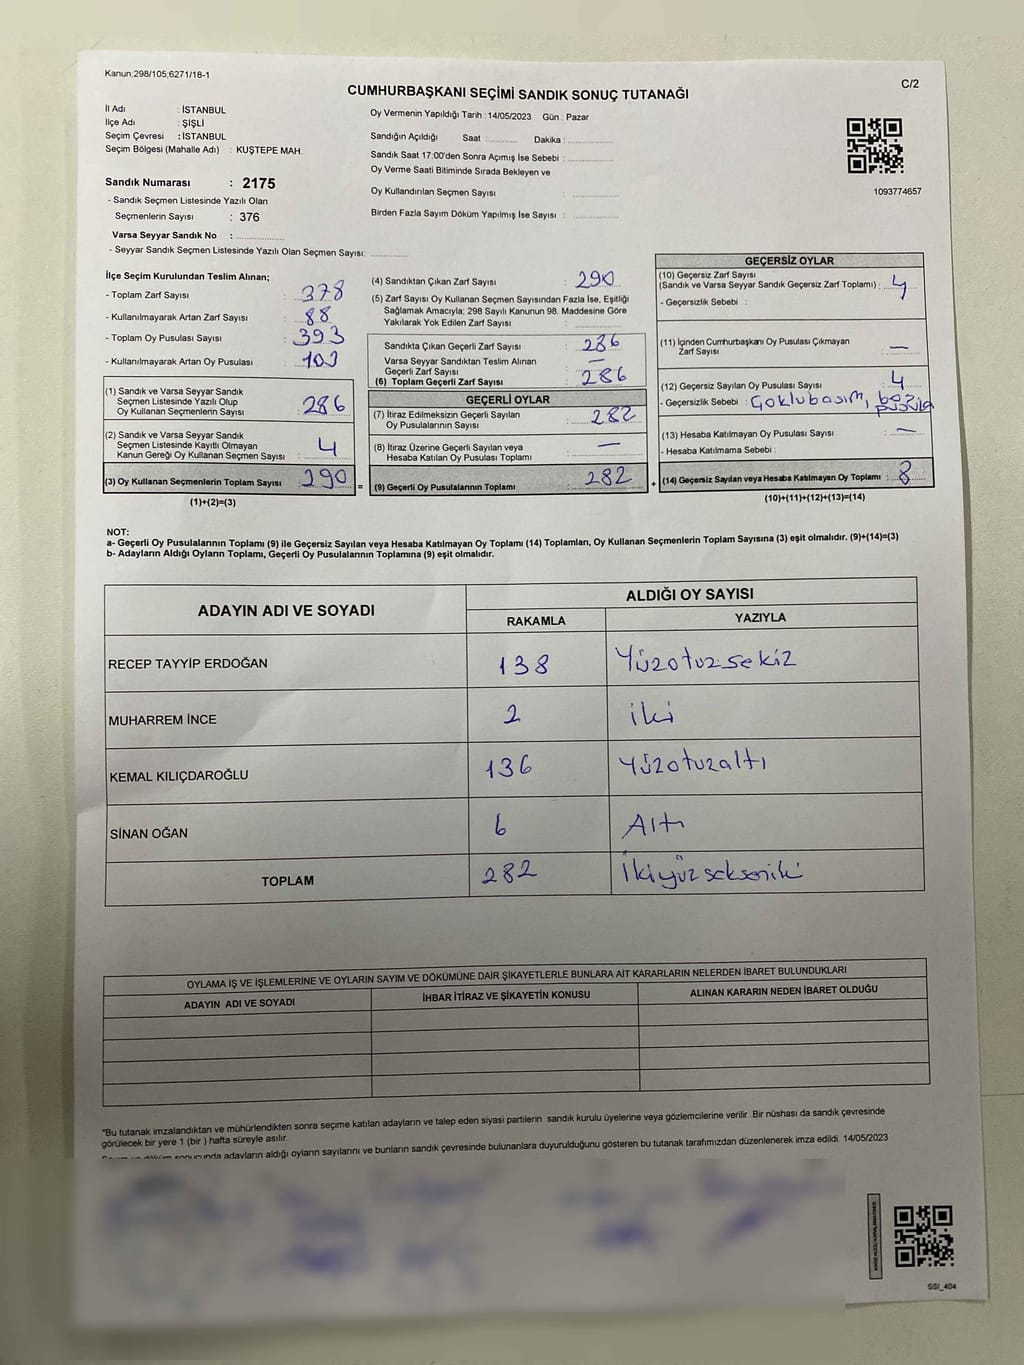 Kanun;298/105;6271/18-1
C/2
CUMHURBAŞKANI SEÇİMİ SANDIK SONUÇ TUTANAĞI
İl Adı : İSTANBUL
İlçe Adı : ŞİŞLİ
Seçim Çevresi : İSTANBUL
Seçim Bölgesi (Mahalle Adı) : KUŞTEPE MAH.
Sandık Numarası : 2175
- Sandık Seçmen Listesinde Yazılı Olan
Seçmenlerin Sayısı : 376
Varsa Seyyar Sandık No :
- Seyyar Sandık Seçmen Listesinde Yazılı Olan Seçmen Sayısı:
Oy Vermenin Yapıldığı Tarih : 14/05/2023 Gün : Pazar
Sandığın Açıldığı Saat : Dakika :
Sandık Saat 17:00'den Sonra Açımış İse Sebebi :
Oy Verme Saati Bitiminde Sırada Bekleyen ve
Oy Kullandırılan Seçmen Sayısı :
Birden Fazla Sayım Döküm Yapılmış İse Sayısı :
1093774657
İlçe Seçim Kurulundan Teslim Alınan;
- Toplam Zarf Sayısı : 378
- Kullanılmayarak Artan Zarf Sayısı : 88
- Toplam Oy Pusulası Sayısı : 393
- Kullanılmayarak Artan Oy Pusulası : 103
(1) Sandık ve Varsa Seyyar Sandık
Seçmen Listesinde Yazılı Olup
Oy Kullanan Seçmenlerin Sayısı : 286
(2) Sandık ve Varsa Seyyar Sandık
Seçmen Listesinde Kayıtlı Olmayan
Kanun Gereği Oy Kullanan Seçmen Sayısı : 4
(3) Oy Kullanan Seçmenlerin Toplam Sayısı : 290 =
(1)+(2)=(3)
(4) Sandıktan Çıkan Zarf Sayısı : 290
(5) Zarf Sayısı Oy Kullanan Seçmen Sayısından Fazla İse, Eşitliği
Sağlamak Amacıyla; 298 Sayılı Kanunun 98. Maddesine Göre
Yakılarak Yok Edilen Zarf Sayısı :
Sandıkta Çıkan Geçerli Zarf Sayısı : 286
Varsa Seyyar Sandıktan Teslim Alınan
Geçerli Zarf Sayısı : —
(6) Toplam Geçerli Zarf Sayısı : 286
GEÇERLİ OYLAR
(7) İtiraz Edilmeksizin Geçerli Sayılan
Oy Pusulalarının Sayısı : 282
(8) İtiraz Üzerine Geçerli Sayılan veya
Hesaba Katılan Oy Pusulası Toplamı : —
(9) Geçerli Oy Pusulalarının Toplamı : 282 +
GEÇERSİZ OYLAR
(10) Geçersiz Zarf Sayısı
(Sandık ve Varsa Seyyar Sandık Geçersiz Zarf Toplamı) : 4
- Geçersizlik Sebebi :
(11) İçinden Cumhurbaşkanı Oy Pusulası Çıkmayan
Zarf Sayısı : —
(12) Geçersiz Sayılan Oy Pusulası Sayısı : 4
- Geçersizlik Sebebi : Çoklubasım, boş
(13) Hesaba Katılmayan Oy Pusulası Sayısı : —
- Hesaba Katılmama Sebebi :
(14) Geçersiz Sayılan veya Hesaba Katılmayan Oy Toplamı : 8
(10)+(11)+(12)+(13)=(14)
NOT:
a- Geçerli Oy Pusulalarının Toplamı (9) ile Geçersiz Sayılan veya Hesaba Katılmayan Oy Toplamı (14) Toplamları, Oy Kullanan Seçmenlerin Toplam Sayısına (3) eşit olmalıdır. (9)+(14)=(3)
b- Adayların Aldığı Oyların Toplamı, Geçerli Oy Pusulalarının Toplamına (9) eşit olmalıdır.
ADAYIN ADI VE SOYADI
ALDIĞI OY SAYISI
RAKAMLA YAZIYLA
RECEP TAYYİP ERDOĞAN 138 Yüzotuzsekiz
MUHARREM İNCE 2 iki
KEMAL KILIÇDAROĞLU 136 Yüzotuzaltı
SİNAN OĞAN 6 Altı
TOPLAM 282 İkiyüzsekseniki
OYLAMA İŞ VE İŞLEMLERİNE VE OYLARIN SAYIM VE DÖKÜMÜNE DAİR ŞİKAYETLERLE BUNLARA AİT KARARLARIN NELERDEN İBARET BULUNDUKLARI
ADAYIN ADI VE SOYADI İHBAR İTİRAZ VE ŞİKAYETİN KONUSU ALINAN KARARIN NEDEN İBARET OLDUĞU
*Bu tutanak imzalandıktan ve mühürlendikten sonra seçime katılan adayların ve talep eden siyasi partilerin sandık kurulu üyelerine veya gözlemcilerine verilir. Bir nüshası da sandık çevresinde
görülecek bir yere 1 (bir ) hafta süreyle asılır.
Sayım ve döküm sonucunda adayların aldığı oyların sayılarını ve bunların sandık çevresinde bulunanlara duyurulduğunu gösteren bu tutanak tarafımızdan düzenlenerek imza edildi. 14/05/2023
SSI_404